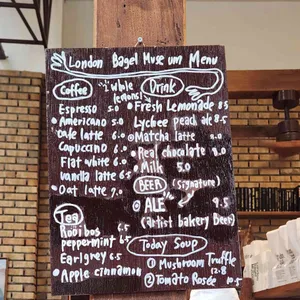 London Bagel Museum Menu
Coffee
Espresso 5.0
Americano 5.0
Cafe latte 6.0
Capuccino 6.0
Flat white 6.0
Vanilla latte 6.5
Oat latte 7.0
Tea
Rooibos 6.5
peppermint 6.5
Earl grey 6.5
Apple cinnamon
Drink
"2 whole lemons!"
Fresh Lemonade 8.5
Lychee peach ale 8.5
Matcha latte 9.0
Real chocolate 9.0
Milk 5.0
BEER (signature)
ALE 9.5
(artist bakery Beer)
Today Soup
① Mushroom Truffle 12.8
② Tomato Rosée 10.5